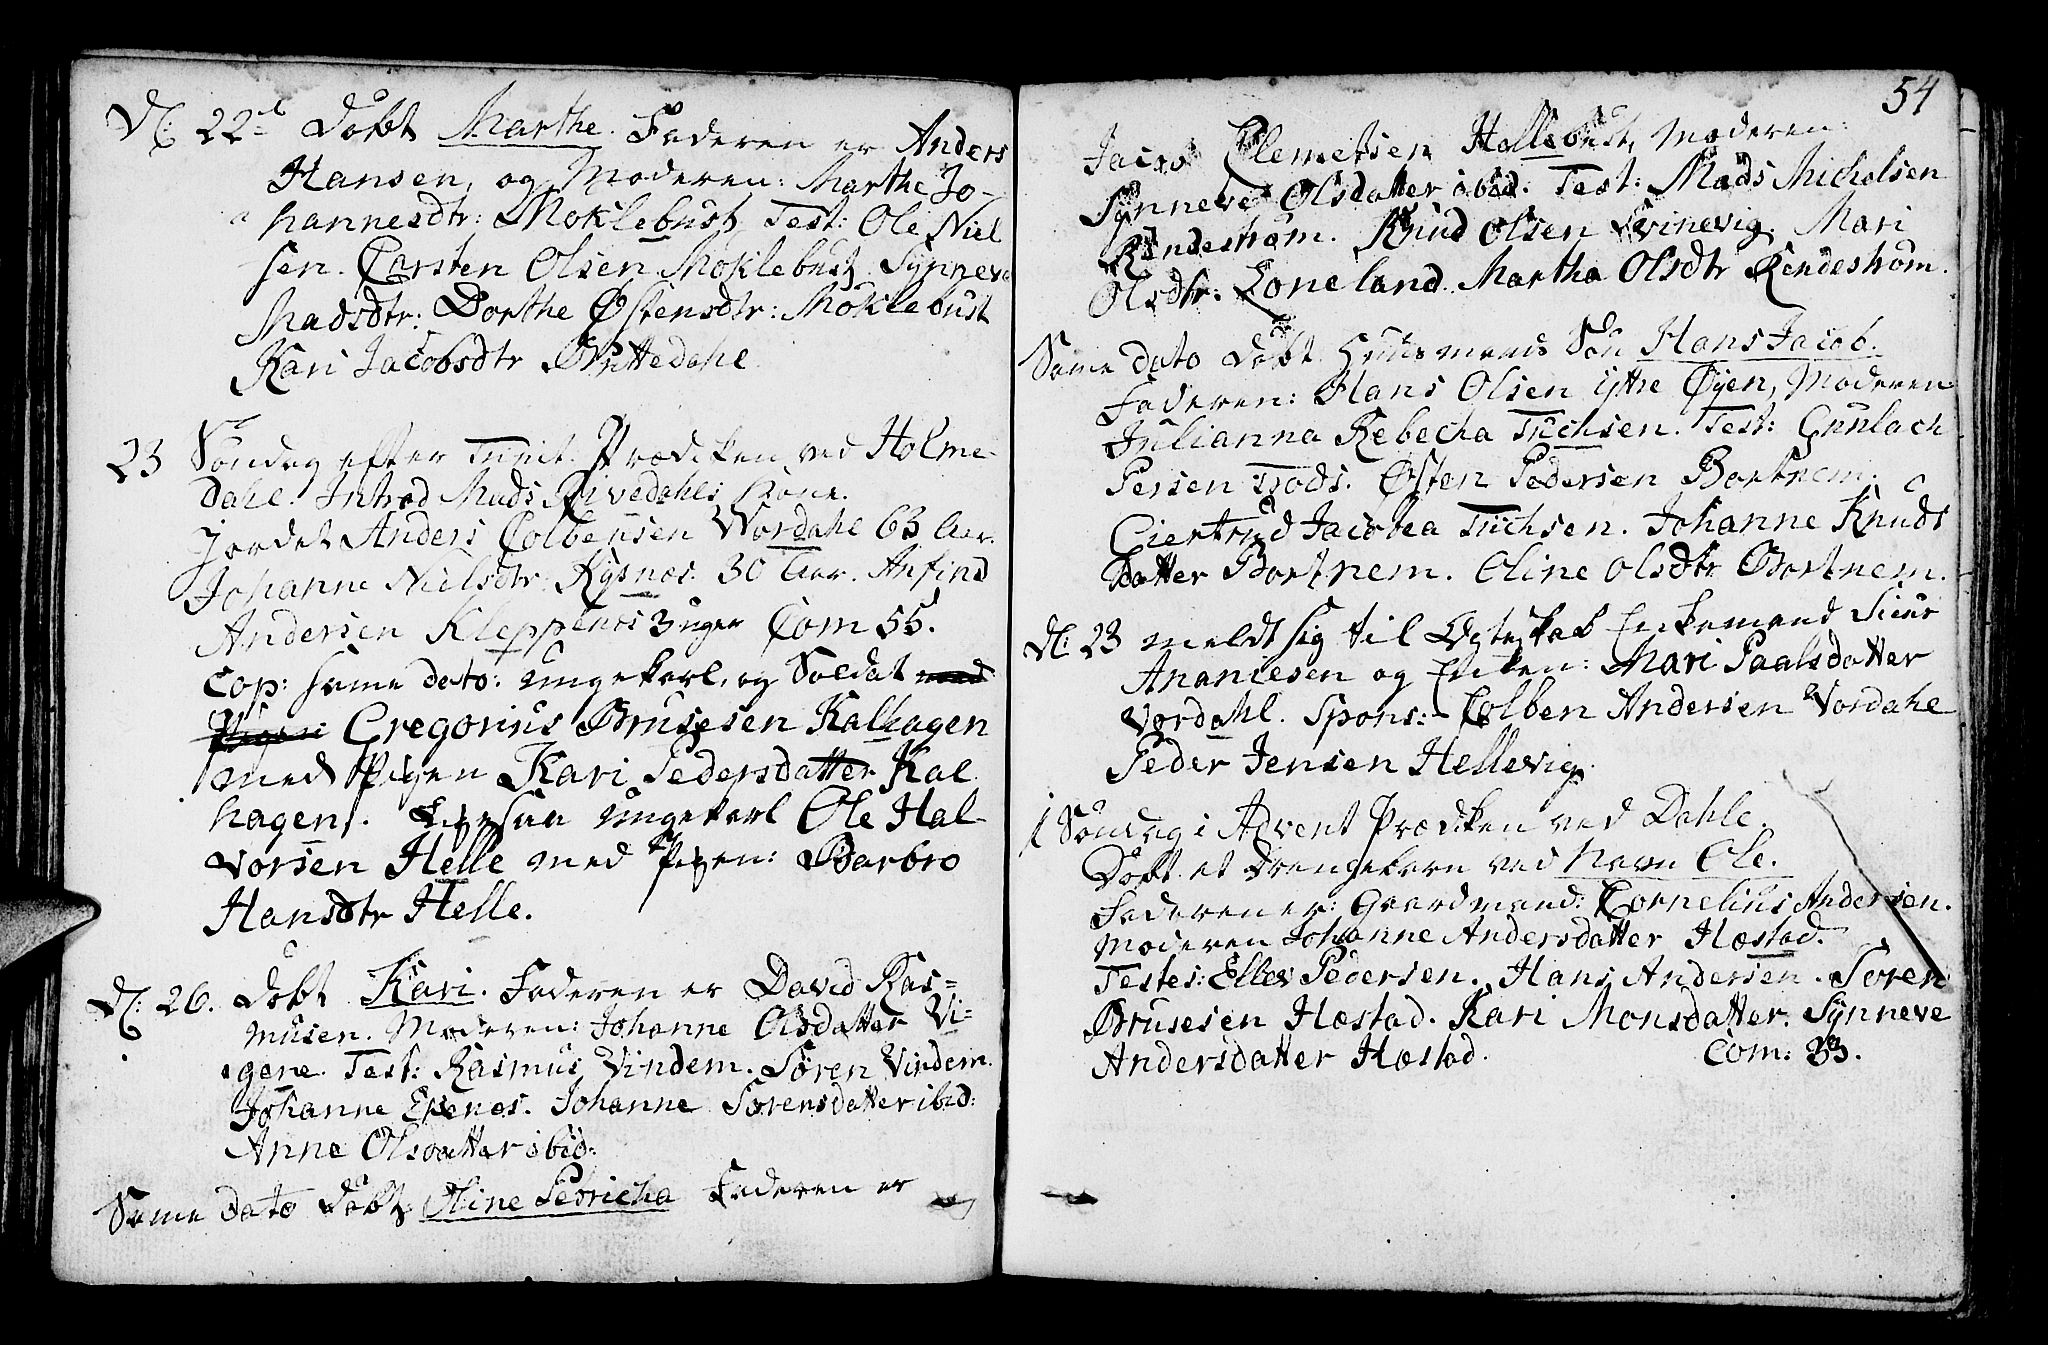 D: 22d Döbt Marthe. Faderen er Anders
Hansen, og Moderen: Marthe Jo-
hannesdtr: Moklebust, Test: Ole Niel
sen. Carsten Olsen Moklebust. Synneve
Madsdtr: Dorthe Østensdtr: Moklebust
Kari Jacobsdtr Grittedahl
23 Søndag efter Trinit. Prædiken ved Holme-
dahl. Introd Mads Rivedahls Kone.
Jordet Anders Colbensen Wordahl 63 Aar.
Johanne Nielsdtr. Rysnes. 30 Aar. Anfind
Andersen Kleppenes 3 uger Com 55.
Cop: same dato: Ungekarl, og Soldat med
Pigen: Gregorius Brusesen Kalhagen
med Pigen Kari Pedersdatter Kal
hagen. Ligesaa Ungekarl Ole Hal-
vorsen Helle med Pigen: Barbro
Hansdtr Helle.
D: 26. Döbt Kari. Faderen er David Ras=
musen. Moderen: Johanne Olsdatter Vi=
gene. Test: Rasmus Vindem. Søren Vindem.
Johanne Epenes. Johanne Sørensdatter ibid:
Anne Olsdatter ibid:
Same Dato Döbt Oline Pedricha Faderen er
54
Jacob Clemetsen Hellebust, Moderen:
Synneve Olsdatter ibid. Test: Mads Micholsen
Rendestrøm. Knud Olsen Svinevig. Mari
Olsdtr: Loneland. Martha Olsdtr Rendeström.
Same Dato Döbt Huusmands Søn Hans Jacob.
Faderen: Hans Olsen Ytre Øyen, Moderen
Julianna Rebecha Tüchsen. Test: Guulach
Persen Trods. Østen Pedersen Bortnem.
Giertrud Jacobea Tüchsen. Johanne Knuds
datter Bortnem. Oline Olsdtr Bortnem.
D: 23 meldt sig til Ægteskab Enkemand Siur
Ananiesen og Enken: Mari Paalsdatter
Vordahl. Spons: Colben Andersen Vordahl
Peder Jensen Hellevig.
1 Søndag i Advent Prædiken ved Dahle.
Döbt et Drengebarn ved Navn Ole.
Faderen er: Gaardmand: Cornelius Andersen.
Moderen Johanne Andersdatter Hæstad.
Testes: Ellev Pedersen. Hans Andersen. Søren
Brusesen Hæstad. Kari Monsdatter. Synneve
Andersdatter Hæstad. Com: 33.